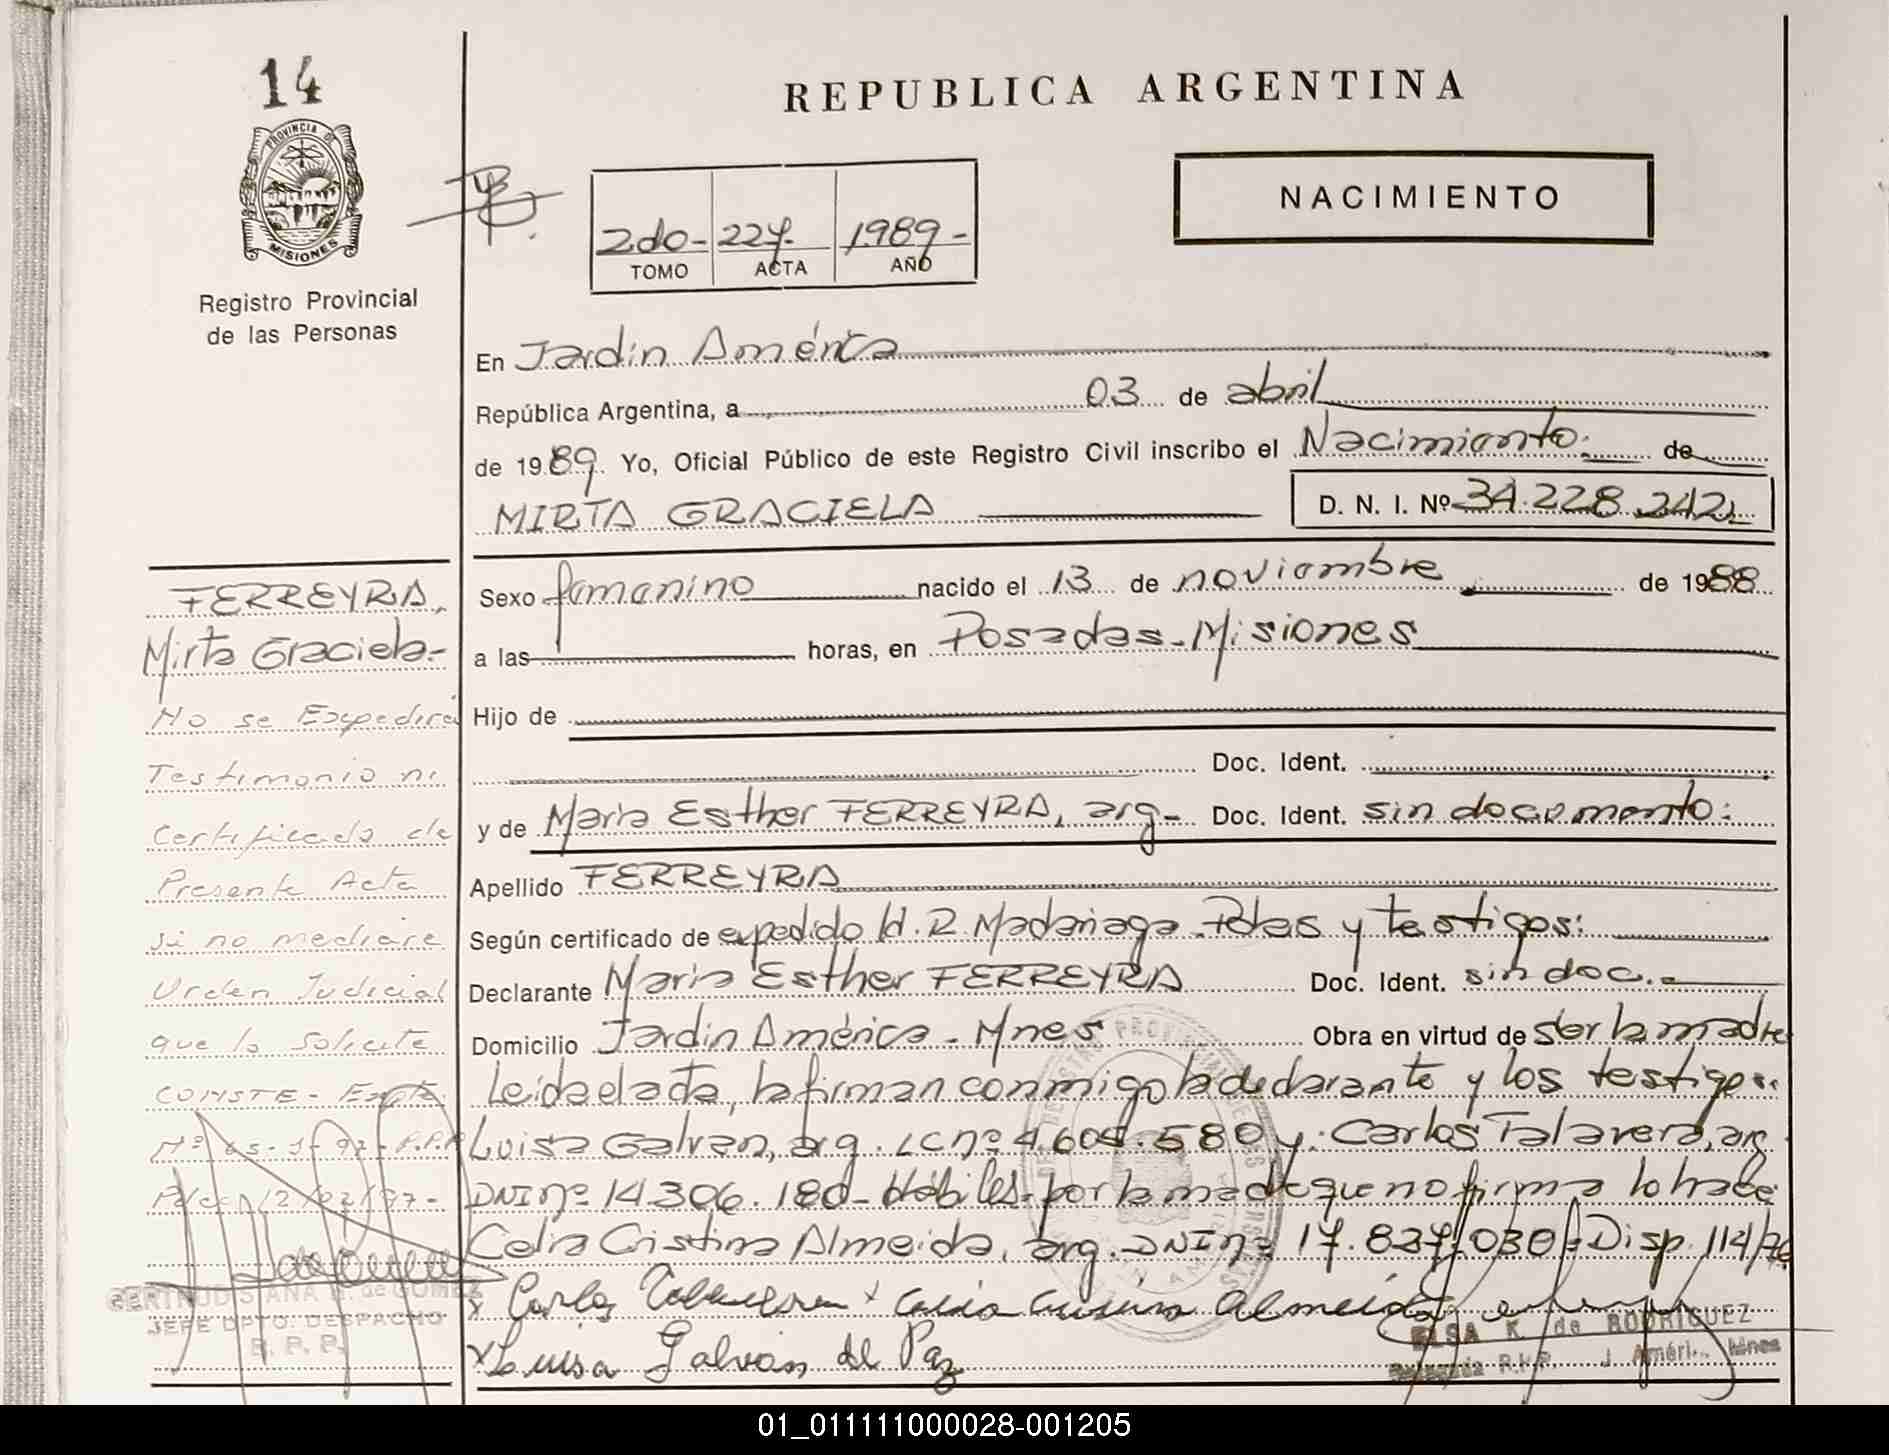 14
PROVINCIA DE
MISIONES
Registro Provincial
de las Personas
REPUBLICA ARGENTINA
NACIMIENTO
2do- 227- 1989-
TOMO ACTA AÑO
En Jardín América
República Argentina, a 03 de abril
de 1989. Yo, Oficial Público de este Registro Civil inscribo el Nacimiento.- de
MIRTA GRACIELA D. N. I. Nº 34.228.242
Sexo femenino nacido el 13 de noviembre de 1988
a las horas, en Posadas-Misiones
Hijo de
Doc. Ident.
y de Maria Esther FERREYRA, arg- Doc. Ident. sin documento:
Apellido FERREYRA
Según certificado de expedido H.R Madariaga-Pdas y testigos:
Declarante Maria Esther FERREYRA Doc. Ident. sin doc.
Domicilio Jardin América-Mnes Obra en virtud de ser la madre
Leida el acta, la firman conmigo la declarante y los testigos:
Luisa Galvan, arg. LC nº 4.604.580 y: Carlos Talavera, arg.
DNI nº 14.306.180-Hábiles-por la madre que no firma lo hace
Celia Cristina Almeida, arg. DNI nº 17.837.030-Disp. 114/76
x Carlos Talavera x Celia Cristina Almeida
x Luisa Galván de Paz
ELSA K. de RODRIGUEZ
Delegada R.P.P. J. Améri.. Mnes
FERREYRA,
Mirta Graciela-
No se Expedirá
Testimonio ni
Certificado de
Presente Acta
si no mediare
Orden Judicial
que lo solicite
CONSTE- Expte
Nº 65-1-97-R.P.P
Pdas, 12/02/97-
GERTRUDIS ANA de GOMEZ
JEFE DPTO. DESPACHO
R. P. P.
01_011111000028-001205